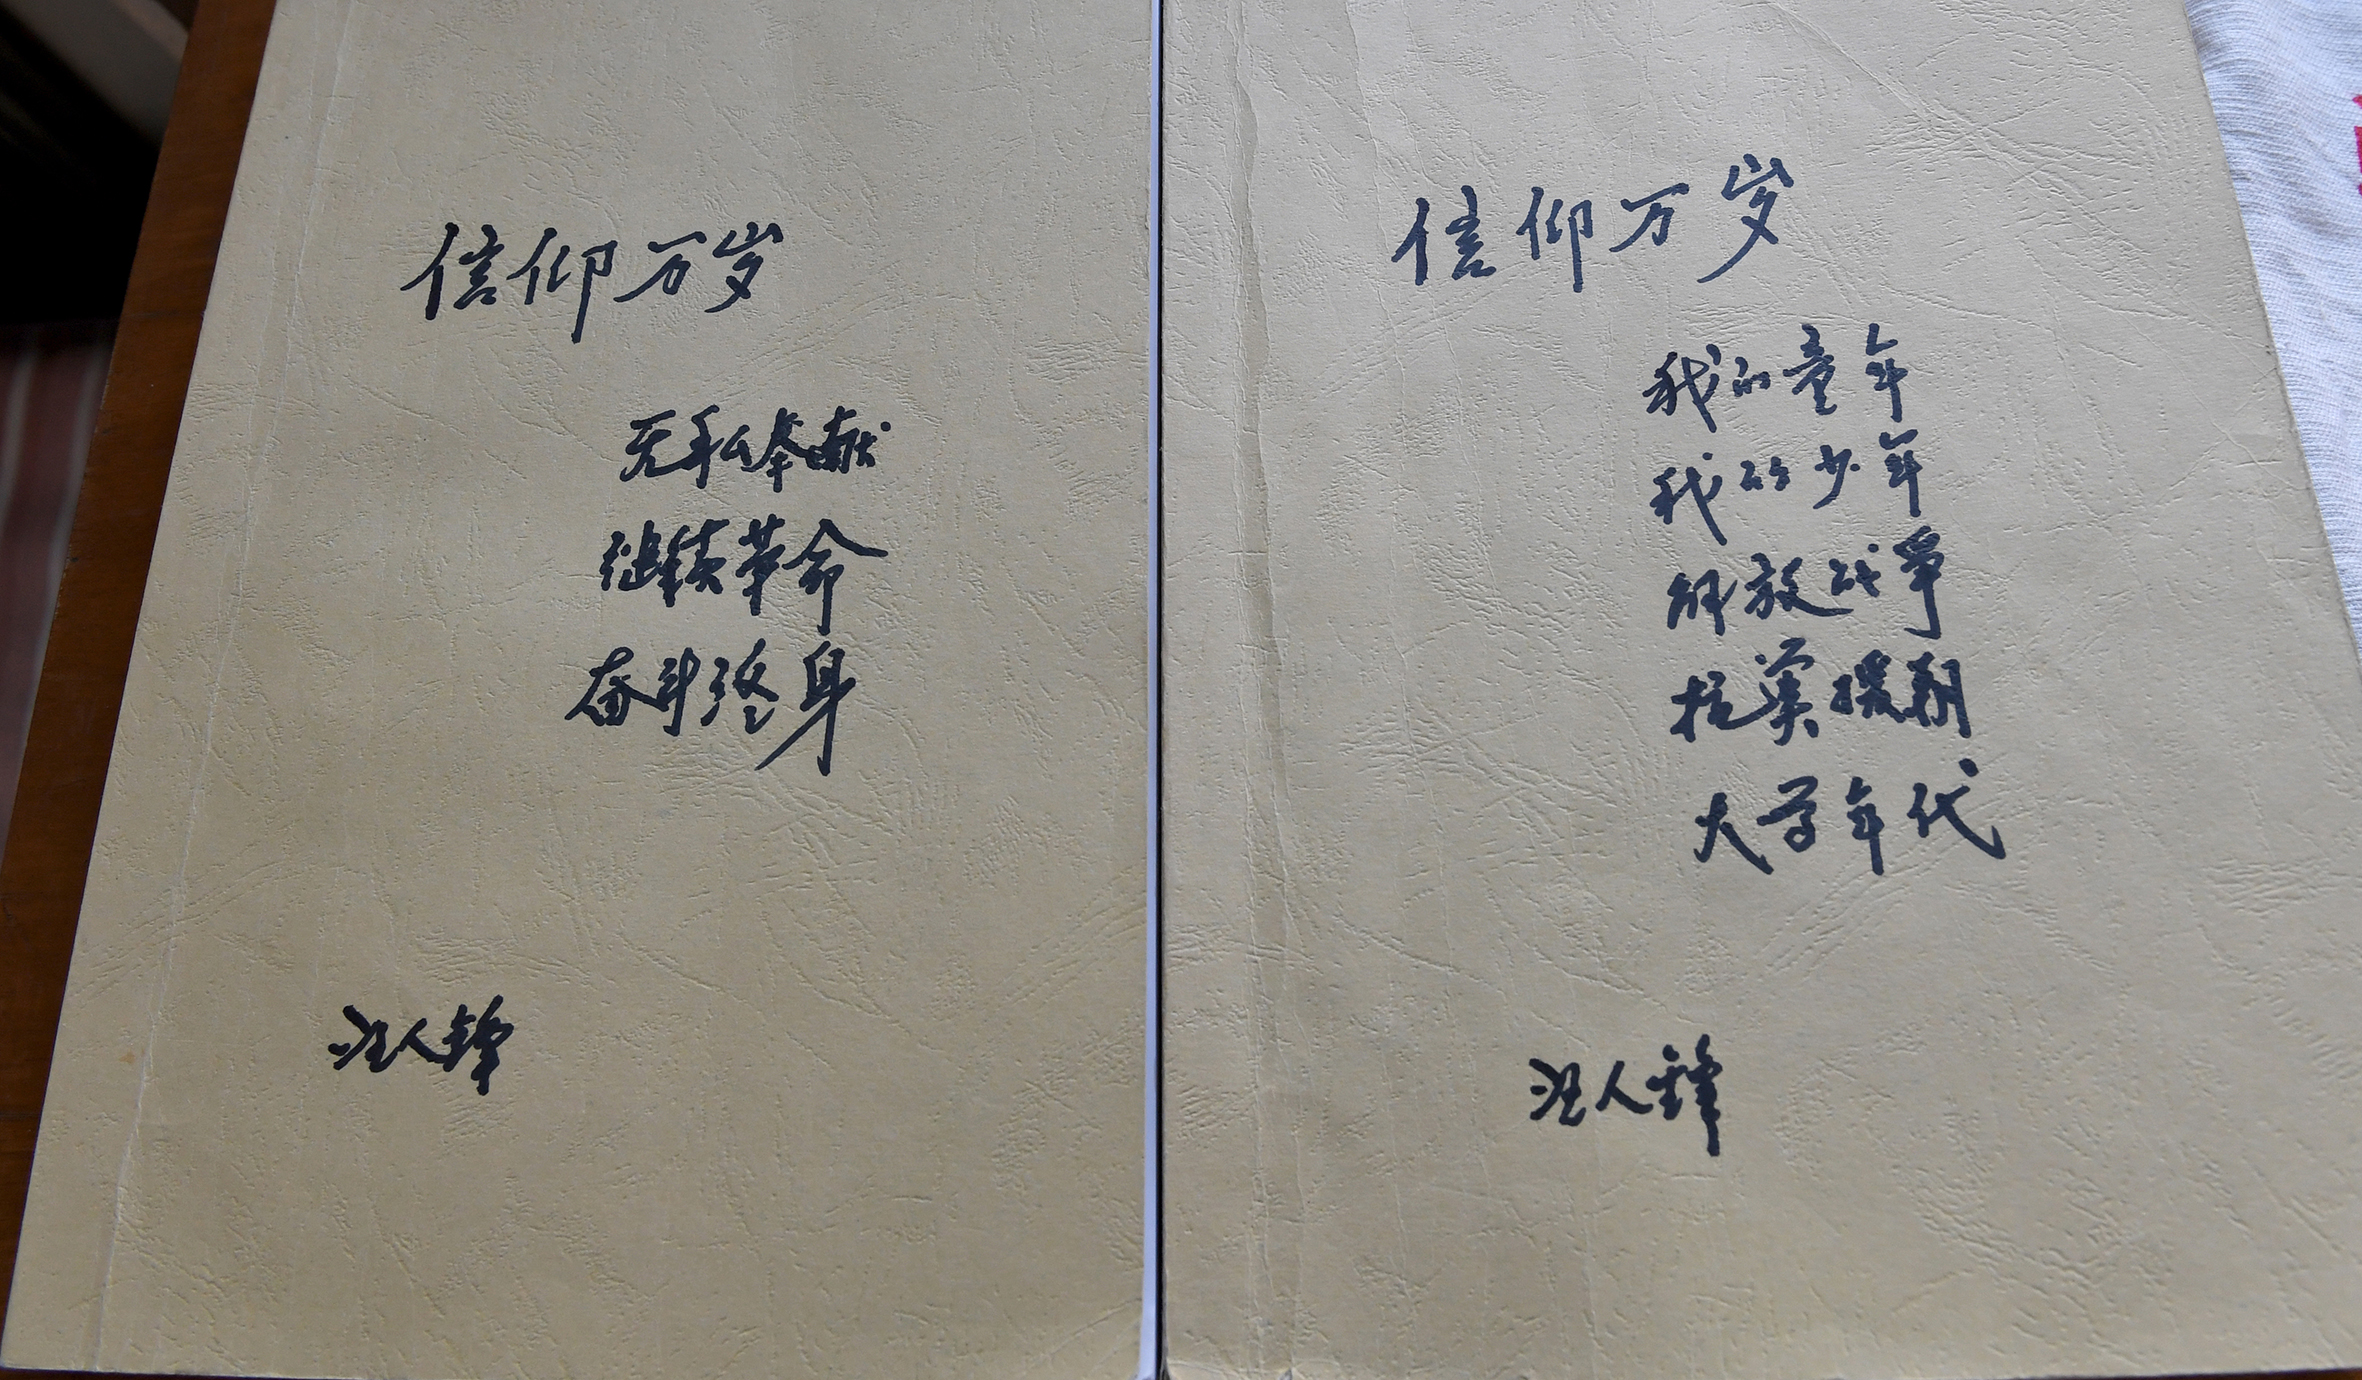 信仰万岁
无私奉献
继续革命
奋斗终身
汪人锋
信仰万岁
我的童年
我的少年
解放战争
抗美援朝
大学年代
汪人锋